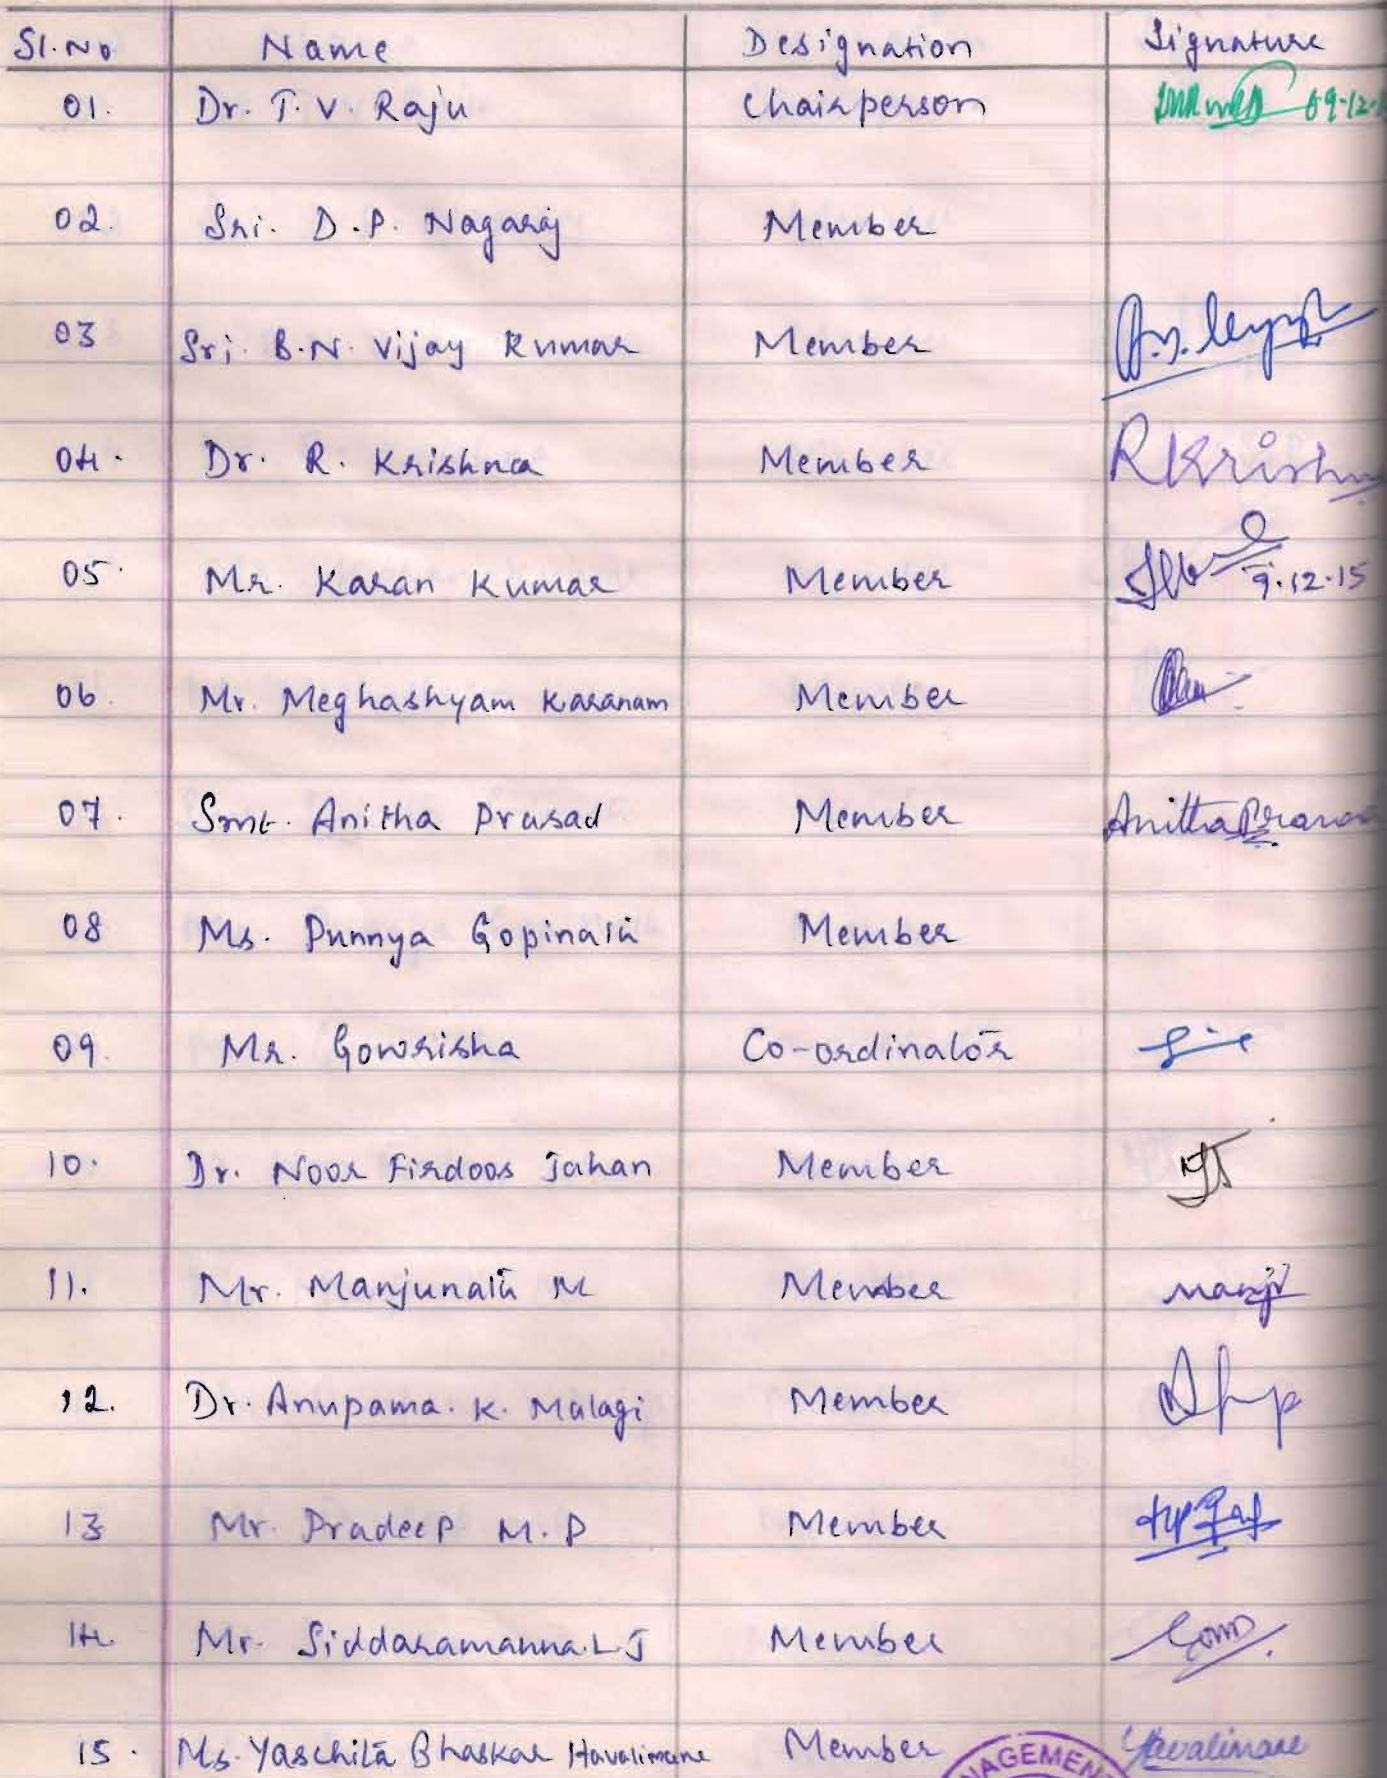 Sl. No Name Designation Signature
01. Dr. T. V. Raju Chairperson 09-12-1
02. Sri. D.P. Nagaraj Member
03 Sri. B.N. Vijay Kumar Member
04. Dr. R. Krishna Member RKrishn
05. Mr. Karan Kumar Member 9.12.15
06. Mr. Meghashyam Karanam Member
07. Smt. Anitha Prasad Member Anitha Prasad
08 Ms. Punnya Gopinath Member
09. Mr. Gowrisha Co-ordinator
10. Dr. Noor Firdoos Jahan Member
11. Mr. Manjunath M Member Manju
12. Dr. Anupama. K. Malagi Member
13 Mr. Pradeep M.P Member
14. Mr. Siddaramanna. L J Member
15. Ms. Yaschita Bhaskar Havalimane Member YHavalimane
NAGEMEN